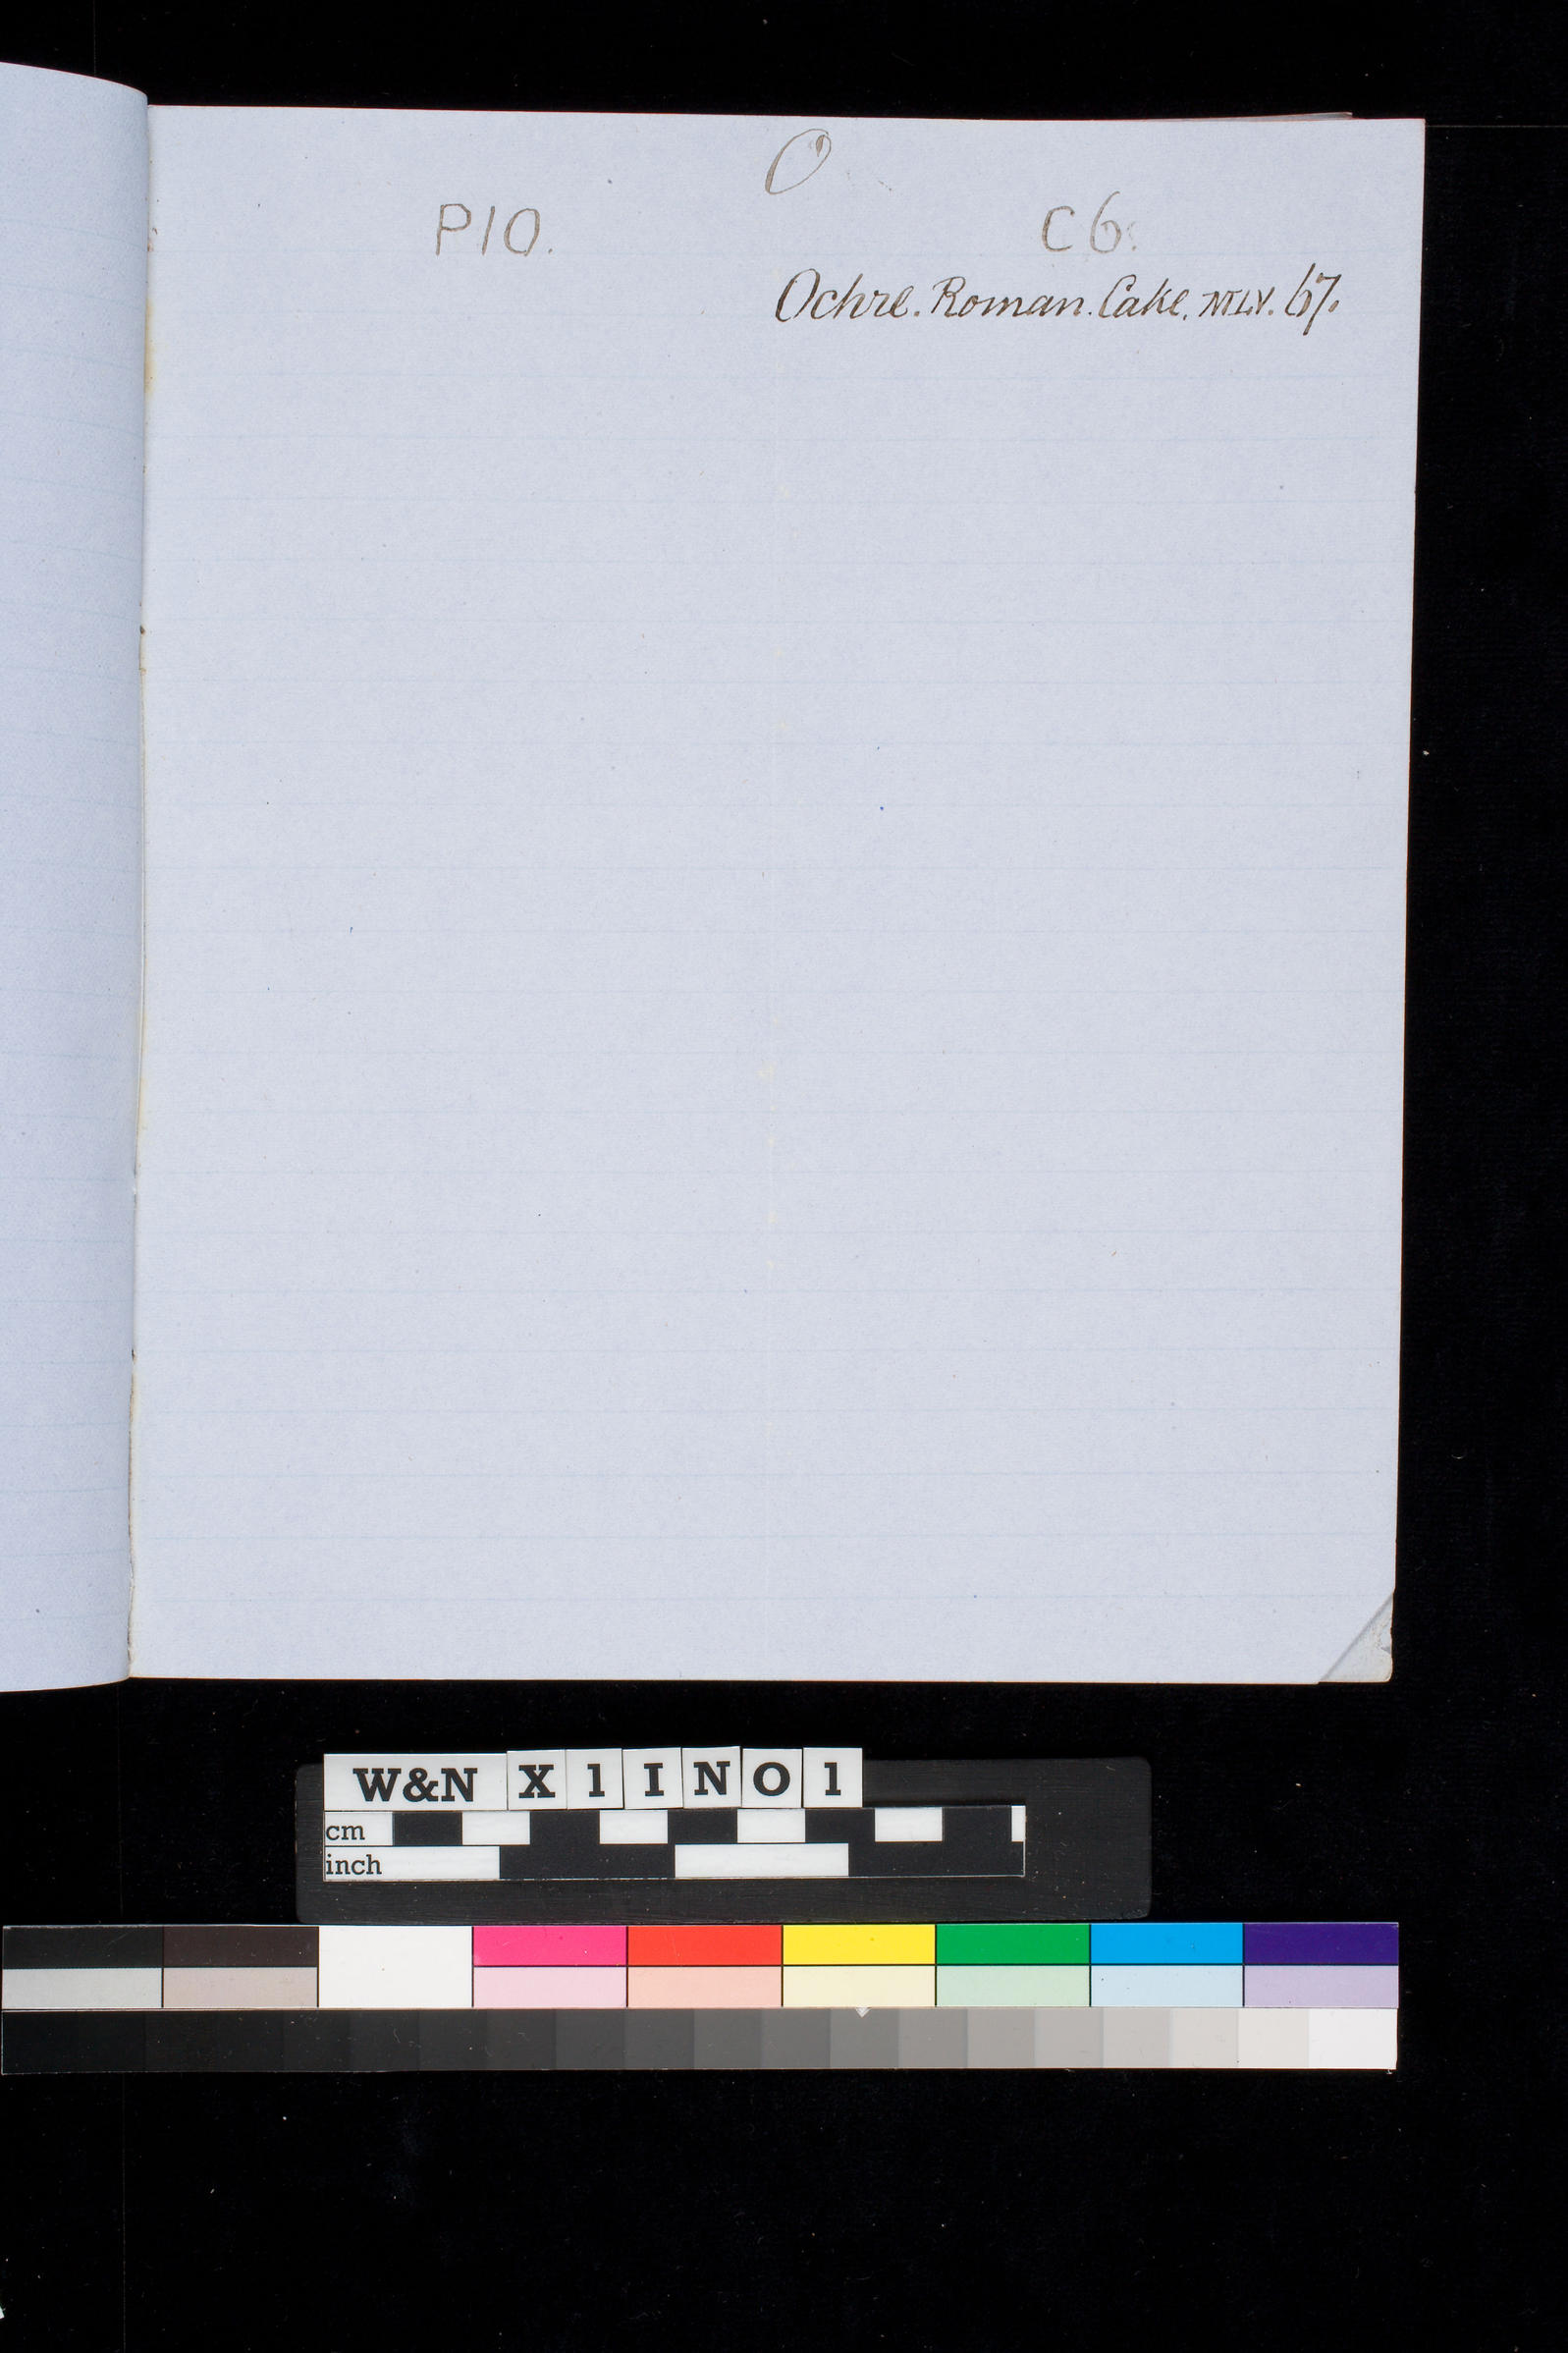 O
P10. C6.
Ochre. Roman. Cake. 67.
W&N X 1 I N O 1
cm
inch